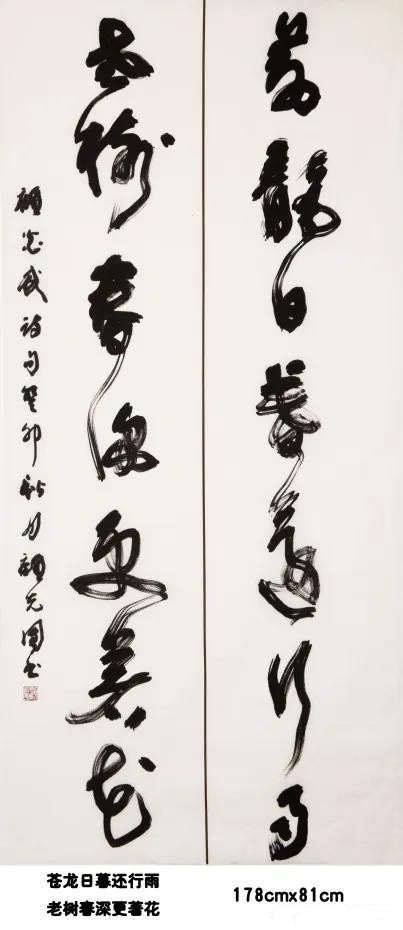 蒼龍日暮還行雨
老樹春深更著花
顧炎武詩句癸卯秋月
苍龙日暮还行雨
老树春深更著花
178cmx81cm